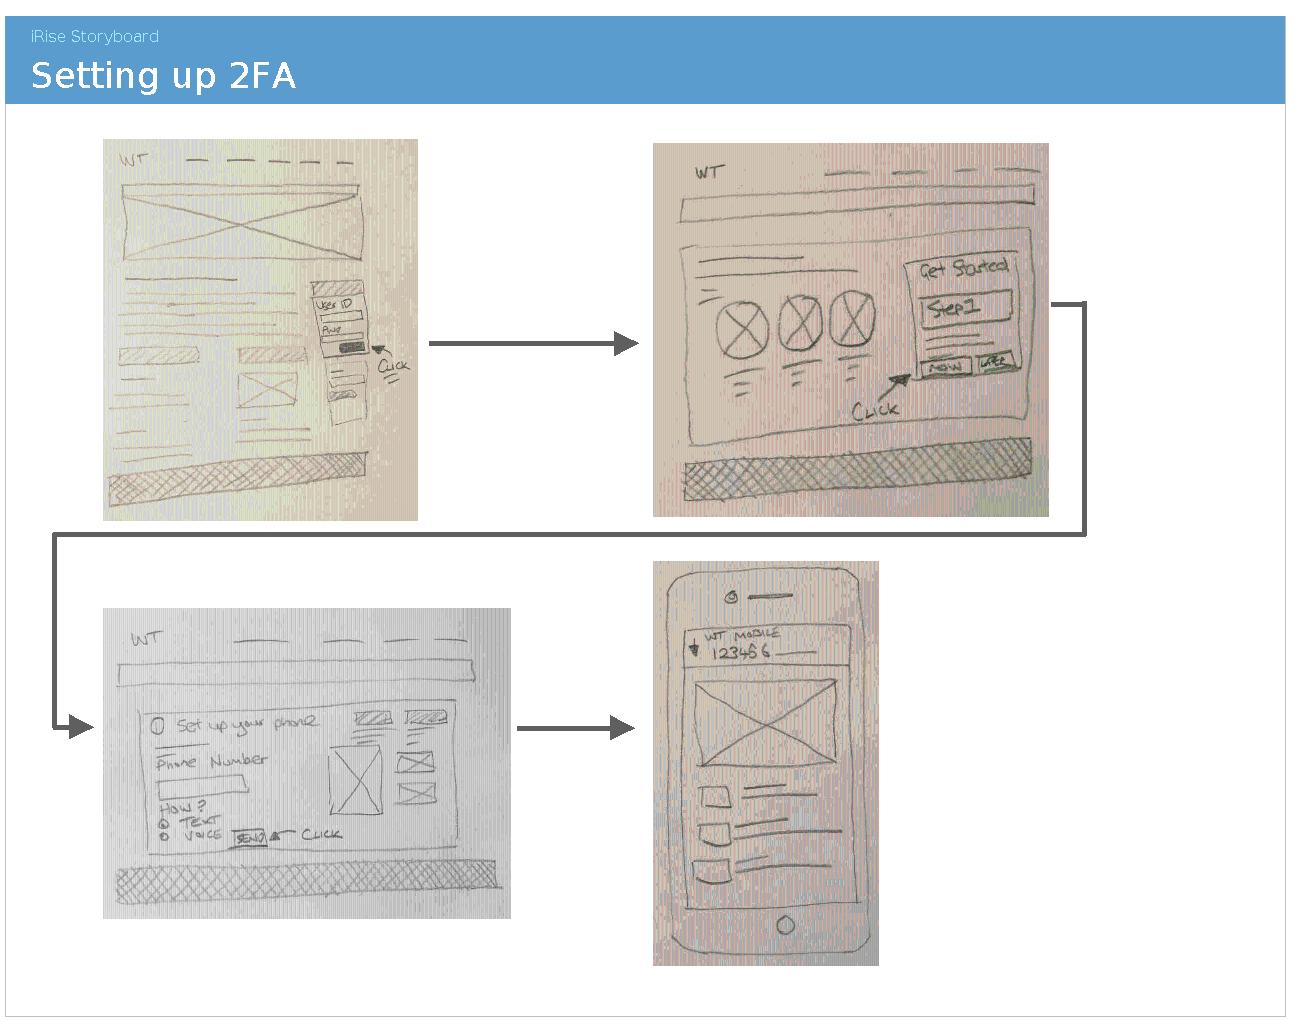 iRise Storyboard
Setting up 2FA
WT
User ID
Pwd
Click
WT
Get Started
Step 1
NOW LATER
Click
WT
1 Set up your phone
Phone Number
How?
TEXT
VOICE SEND CLICK
WT MOBILE
123456